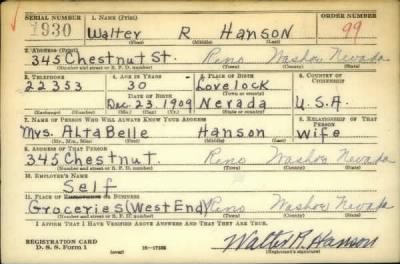 SERIAL NUMBER 1. NAME (Print) ORDER NUMBER
1930 Walter R Hanson 99
(First) (Middle) (Last)
2. ADDRESS (Print)
345 Chestnut St. Reno Washoe Nevada
(Number and street or R. F. D. number) (Town) (County) (State)
3. TELEPHONE 4. AGE IN YEARS 5. PLACE OF BIRTH 6. COUNTRY OF CITIZENSHIP
22353 30 Lovelock
DATE OF BIRTH (Town or county)
Dec. 23. 1909 Nevada U.S.A.
(Exchange) (Number) (Mo.) (Day) (Yr.) (State or country)
7. NAME OF PERSON WHO WILL ALWAYS KNOW YOUR ADDRESS 8. RELATIONSHIP OF THAT PERSON
Mrs. Alta Belle Hanson Wife
(Mr., Mrs., Miss) (First) (Middle) (Last)
9. ADDRESS OF THAT PERSON
345 Chestnut. Reno Washoe Nevada
(Number and street or R. F. D. number) (Town) (County) (State)
10. EMPLOYER'S NAME
Self
11. PLACE OF EMPLOYMENT OR BUSINESS
Groceries (West End) Reno Washoe Nevada
(Number and street or R. F. D. number) (Town) (County) (State)
I AFFIRM THAT I HAVE VERIFIED ABOVE ANSWERS AND THAT THEY ARE TRUE.
REGISTRATION CARD
D. S. S. Form 1 (over) 16—17105
Walter R. Hanson
(Registrant's signature)